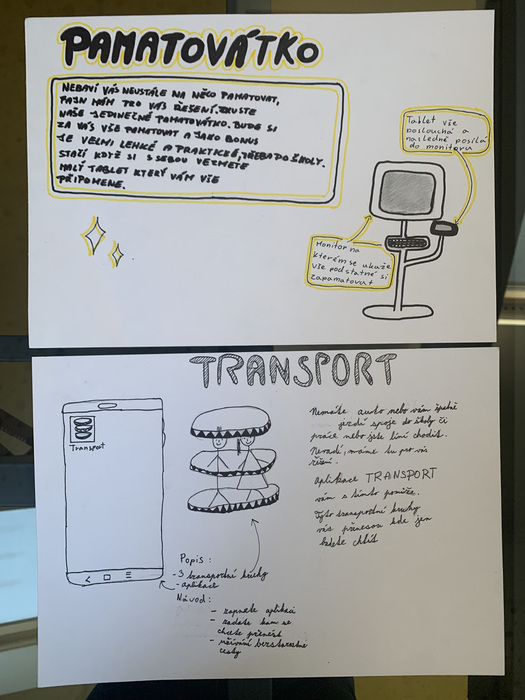 PAMATOVÁTKO
NEBAVÍ VÁS NEUSTÁLE NA NĚCO PAMATOVAT,
FAJN MÁM PRO VÁS ŘEŠENÍ. ZKUSTE
NAŠE JEDINEČNÉ PAMATOVÁTKO. BUDE SI
ZA VÁS VŠE PAMATOVAT A JAKO BONUS
JE VELMI LEHKÉ A PRAKTICKÉ, TŘEBA DO ŠKOLY.
STAČÍ KDYŽ SI S SEBOU VEZMETE
MALÝ TABLET KTERÝ VÁM VŠE
PŘIPOMENE.
Tablet vše
poslouchá a
následně posílá
do monitoru
Monitor na
kterém se ukáže
vše podstatné si
zapamatovat
TRANSPORT
Transport
Nemáte auto nebo vám špatně
jezdí spoje do školy či
práce nebo jste líní chodit.
Nevadí, máme tu pro vás
řešení.
Aplikace TRANSPORT
vám s tímto pomůže.
Tyto transportní kruhy
vás přenesou kde jen
budete chtít
Popis:
- 3 transportní kruhy
- aplikace
Návod:
- zapnete aplikaci
- zadáte kam se
chcete přenést
- užívání bezstarostné
cesty